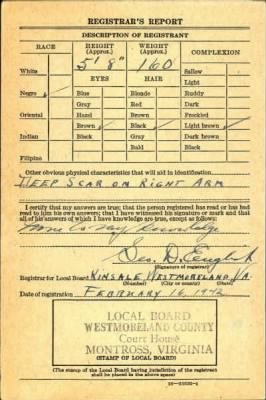 REGISTRAR'S REPORT
DESCRIPTION OF REGISTRANT
RACE HEIGHT (Approx.) WEIGHT (Approx.) COMPLEXION
5' 8" 160
White Sallow
EYES HAIR Light
Negro ✓ Blue Blonde Ruddy
Gray Red Dark
Oriental Hazel Brown Freckled
Brown ✓ Black ✓ Light brown ✓
Indian Black Gray Dark brown
Bald Black
Filipino
Other obvious physical characteristics that will aid in identification
DEEP SCAR ON RIGHT ARM
I certify that my answers are true; that the person registered has read or has had
read to him his own answers; that I have witnessed his signature or mark and that
all of his answers of which I have knowledge are true, except as follows:
None to my knowledge
Geo. D. English
(Signature of registrar)
Registrar for Local Board KINSALE WESTMORELAND VA.
(Number) (City or county) (State)
Date of registration FEBRUARY 16, 1942
LOCAL BOARD
WESTMORELAND COUNTY
Court House
MONTROSS, VIRGINIA
(STAMP OF LOCAL BOARD)
(The stamp of the Local Board having jurisdiction of the registrant
shall be placed in the above space)